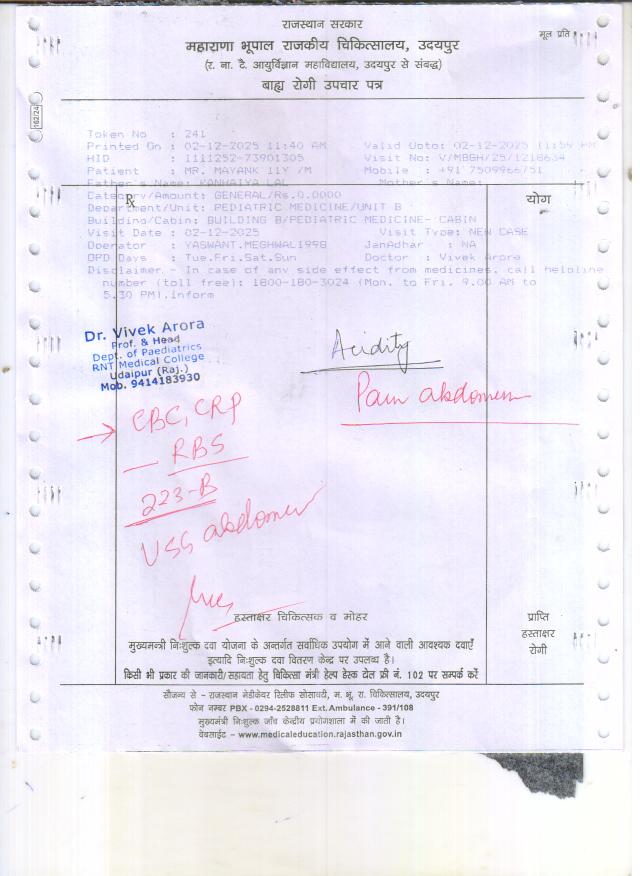 राजस्थान सरकार
महाराणा भूपाल राजकीय चिकित्सालय, उदयपुर
मूल प्रति
(र. ना. टै. आयुर्विज्ञान महाविद्यालय, उदयपुर से संबद्ध)
बाह्य रोगी उपचार पत्र
162/24
Token No : 241
Printed On : 02-12-2025 11:40 AM Valid Upto: 02-12-2025 11:59 PM
HID : 1111252-73901305 Visit No: V/MBGH/25/1218634
Patient : MR. MAYANK 11Y /M Mobile : +91 7509966751
Father's Name: KANHAIYA LAL Mother's Name:
Category/Amount: GENERAL/Rs.0.0000
Rx
योग
Department/Unit: PEDIATRIC MEDICINE/UNIT B
Building/Cabin: BUILDING B/PEDIATRIC MEDICINE- CABIN
Visit Date : 02-12-2025 Visit Type: NEW CASE
Operator : YASWANT.MEGHWAL1998 JanAdhar : NA
OPD Days : Tue.Fri.Sat.Sun Doctor : Vivek Arora
Disclaimer - In case of any side effect from medicines. call helpline
number (toll free): 1800-180-3024 (Mon. to Fri. 9.00 AM to
5.30 PM).inform
Dr. Vivek Arora
Prof. & Head
Dept. of Paediatrics
RNT Medical College
Udaipur (Raj.)
Mob. 9414183930
Acidity
Pain abdomen
CBC, CRP
RBS
223-B
USG abdomen
हस्ताक्षर चिकित्सक व मोहर
प्राप्ति
हस्ताक्षर
रोगी
मुख्यमन्त्री निःशुल्क दवा योजना के अन्तर्गत सर्वाधिक उपयोग में आने वाली आवश्यक दवाएँ
इत्यादि निःशुल्क दवा वितरण केन्द्र पर उपलब्ध है।
किसी भी प्रकार की जानकारी/सहायता हेतु चिकित्सा मंत्री हेल्प डेस्क टोल फ्री नं. 102 पर सम्पर्क करें
सौजन्य से - राजस्थान मेडीकेयर रिलीफ सोसायटी, म. भू. रा. चिकित्सालय, उदयपुर
फोन नम्बर PBX - 0294-2528811 Ext. Ambulance - 391/108
मुख्यमंत्री निःशुल्क जाँच केन्द्रीय प्रयोगशाला में की जाती है।
वेबसाईट - www.medicaleducation.rajasthan.gov.in